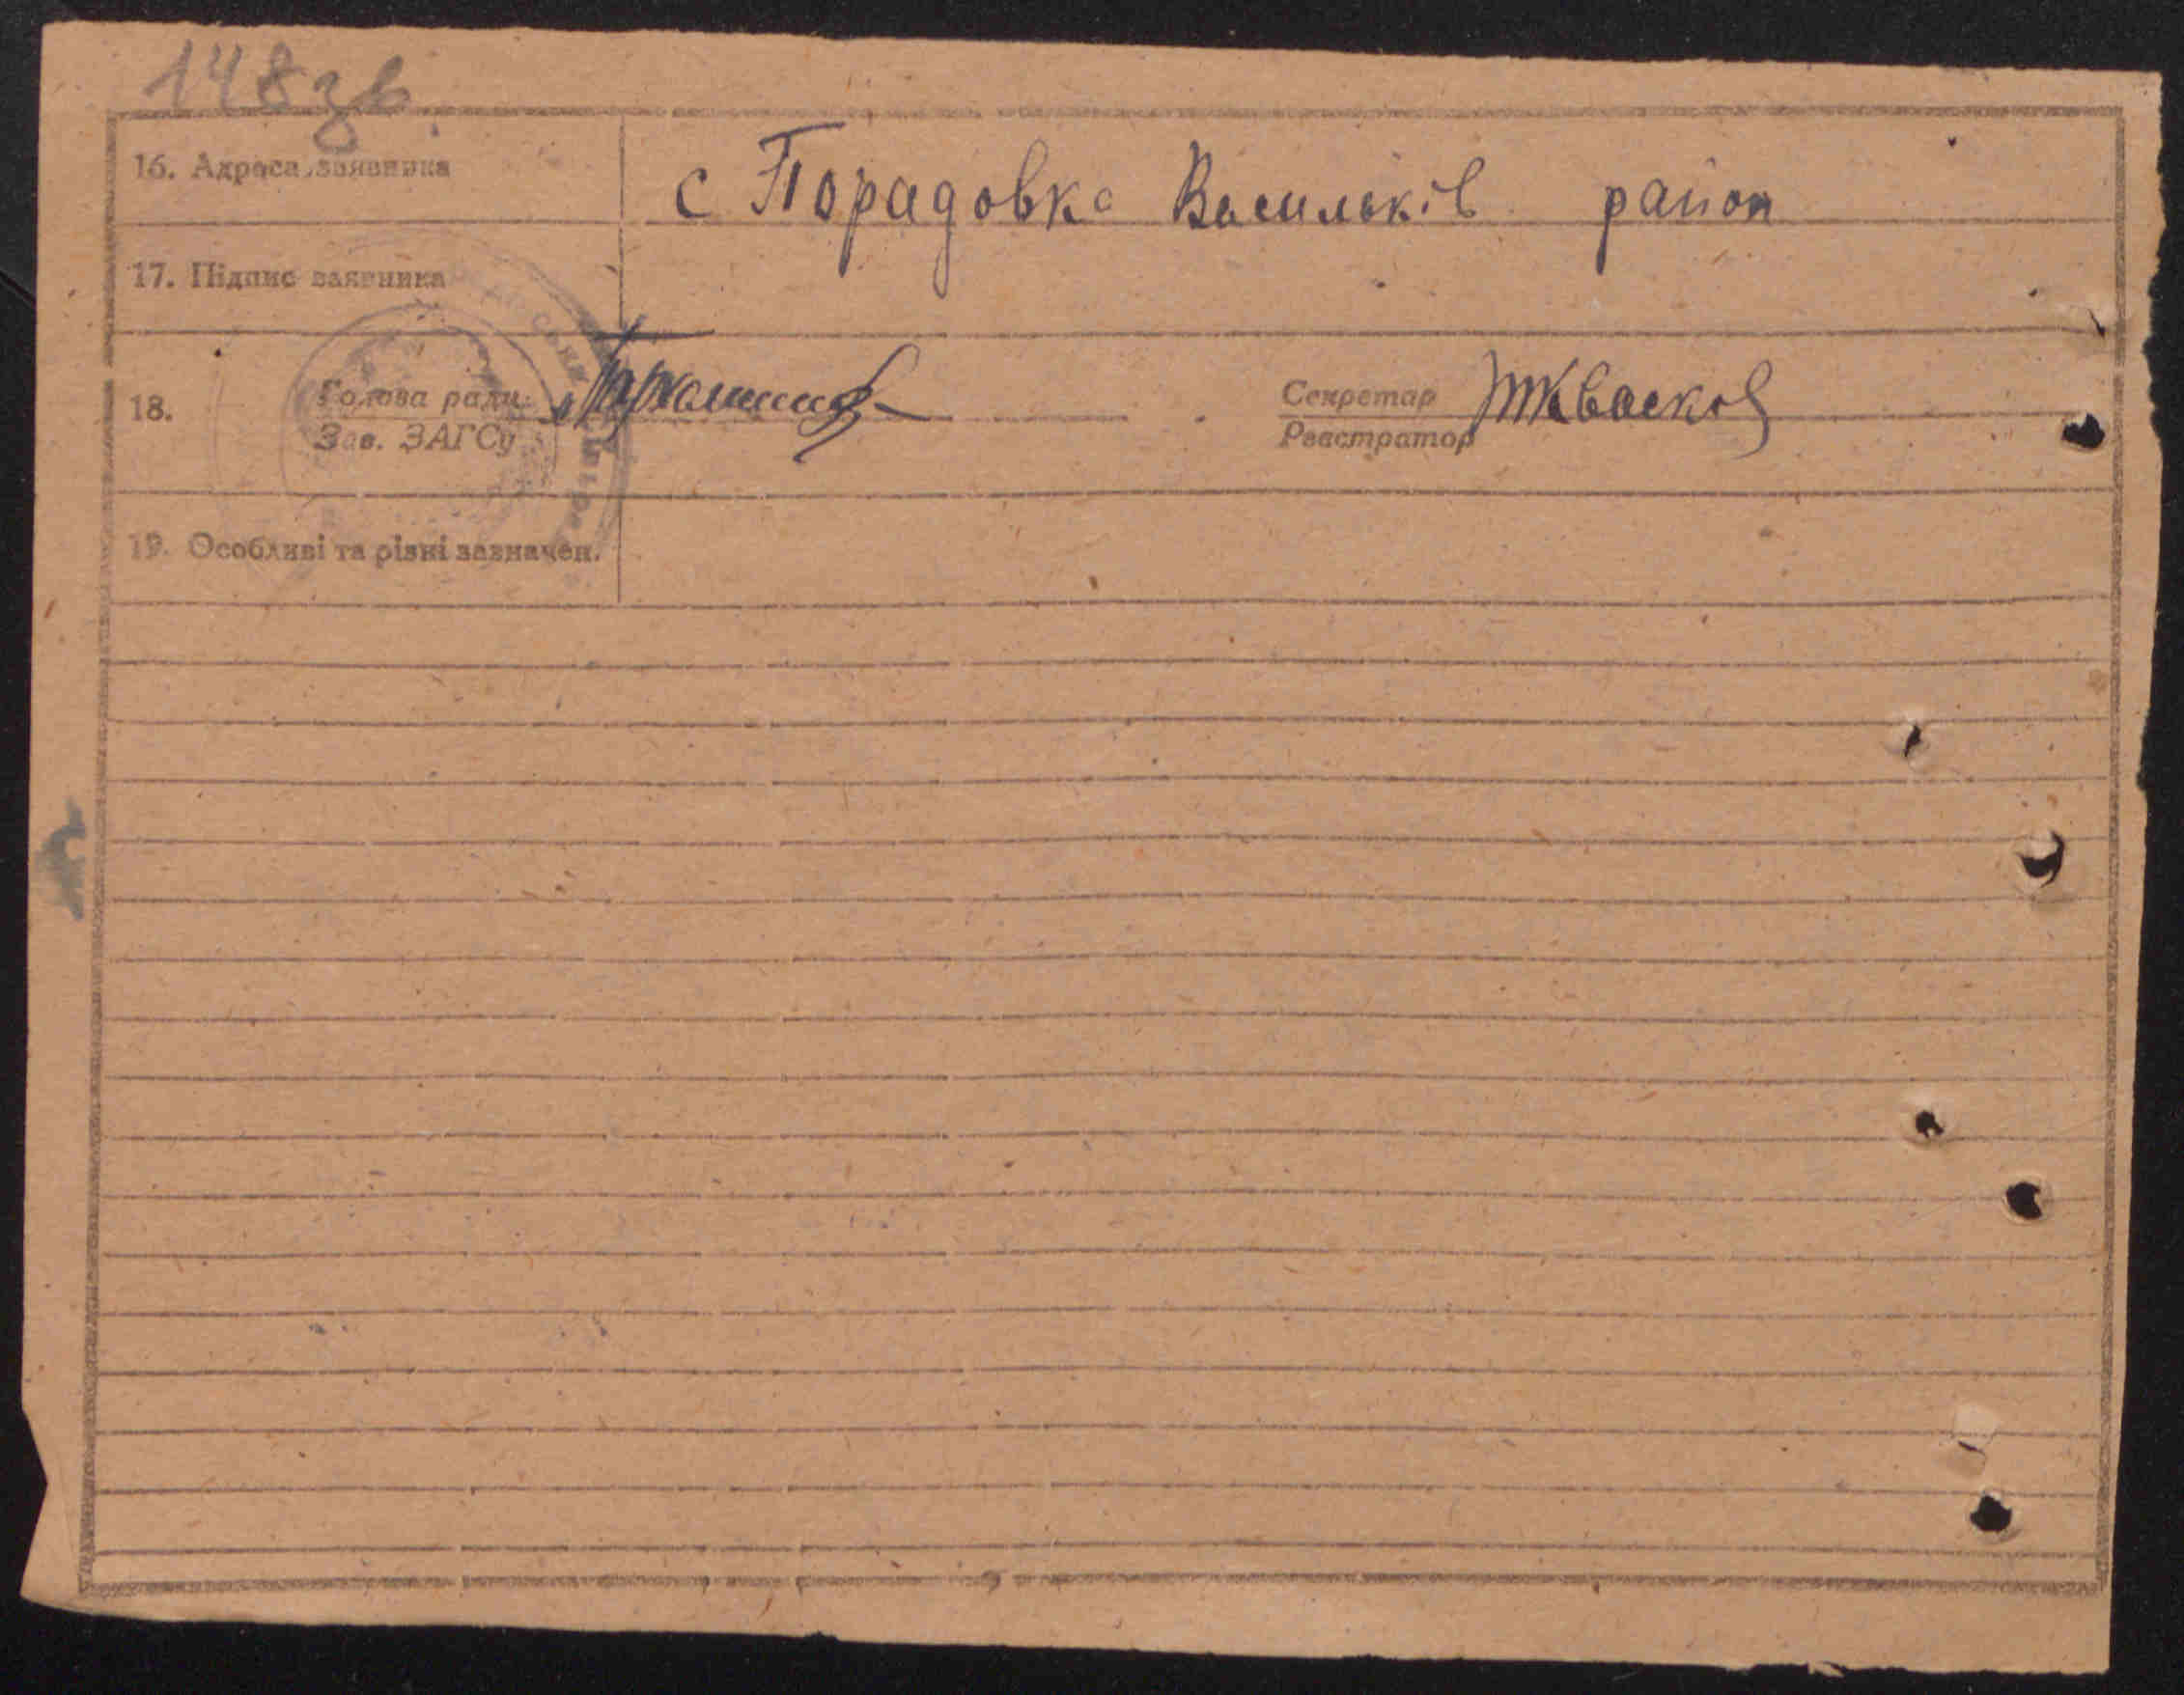 148зв
16. Адреса заявника
с Порадовка Васильків район
17. Підпис заявника
18.
Голова ради
Зав. ЗАГСу
Секретар
Реєстратор
19. Особливі та різні зазначен.